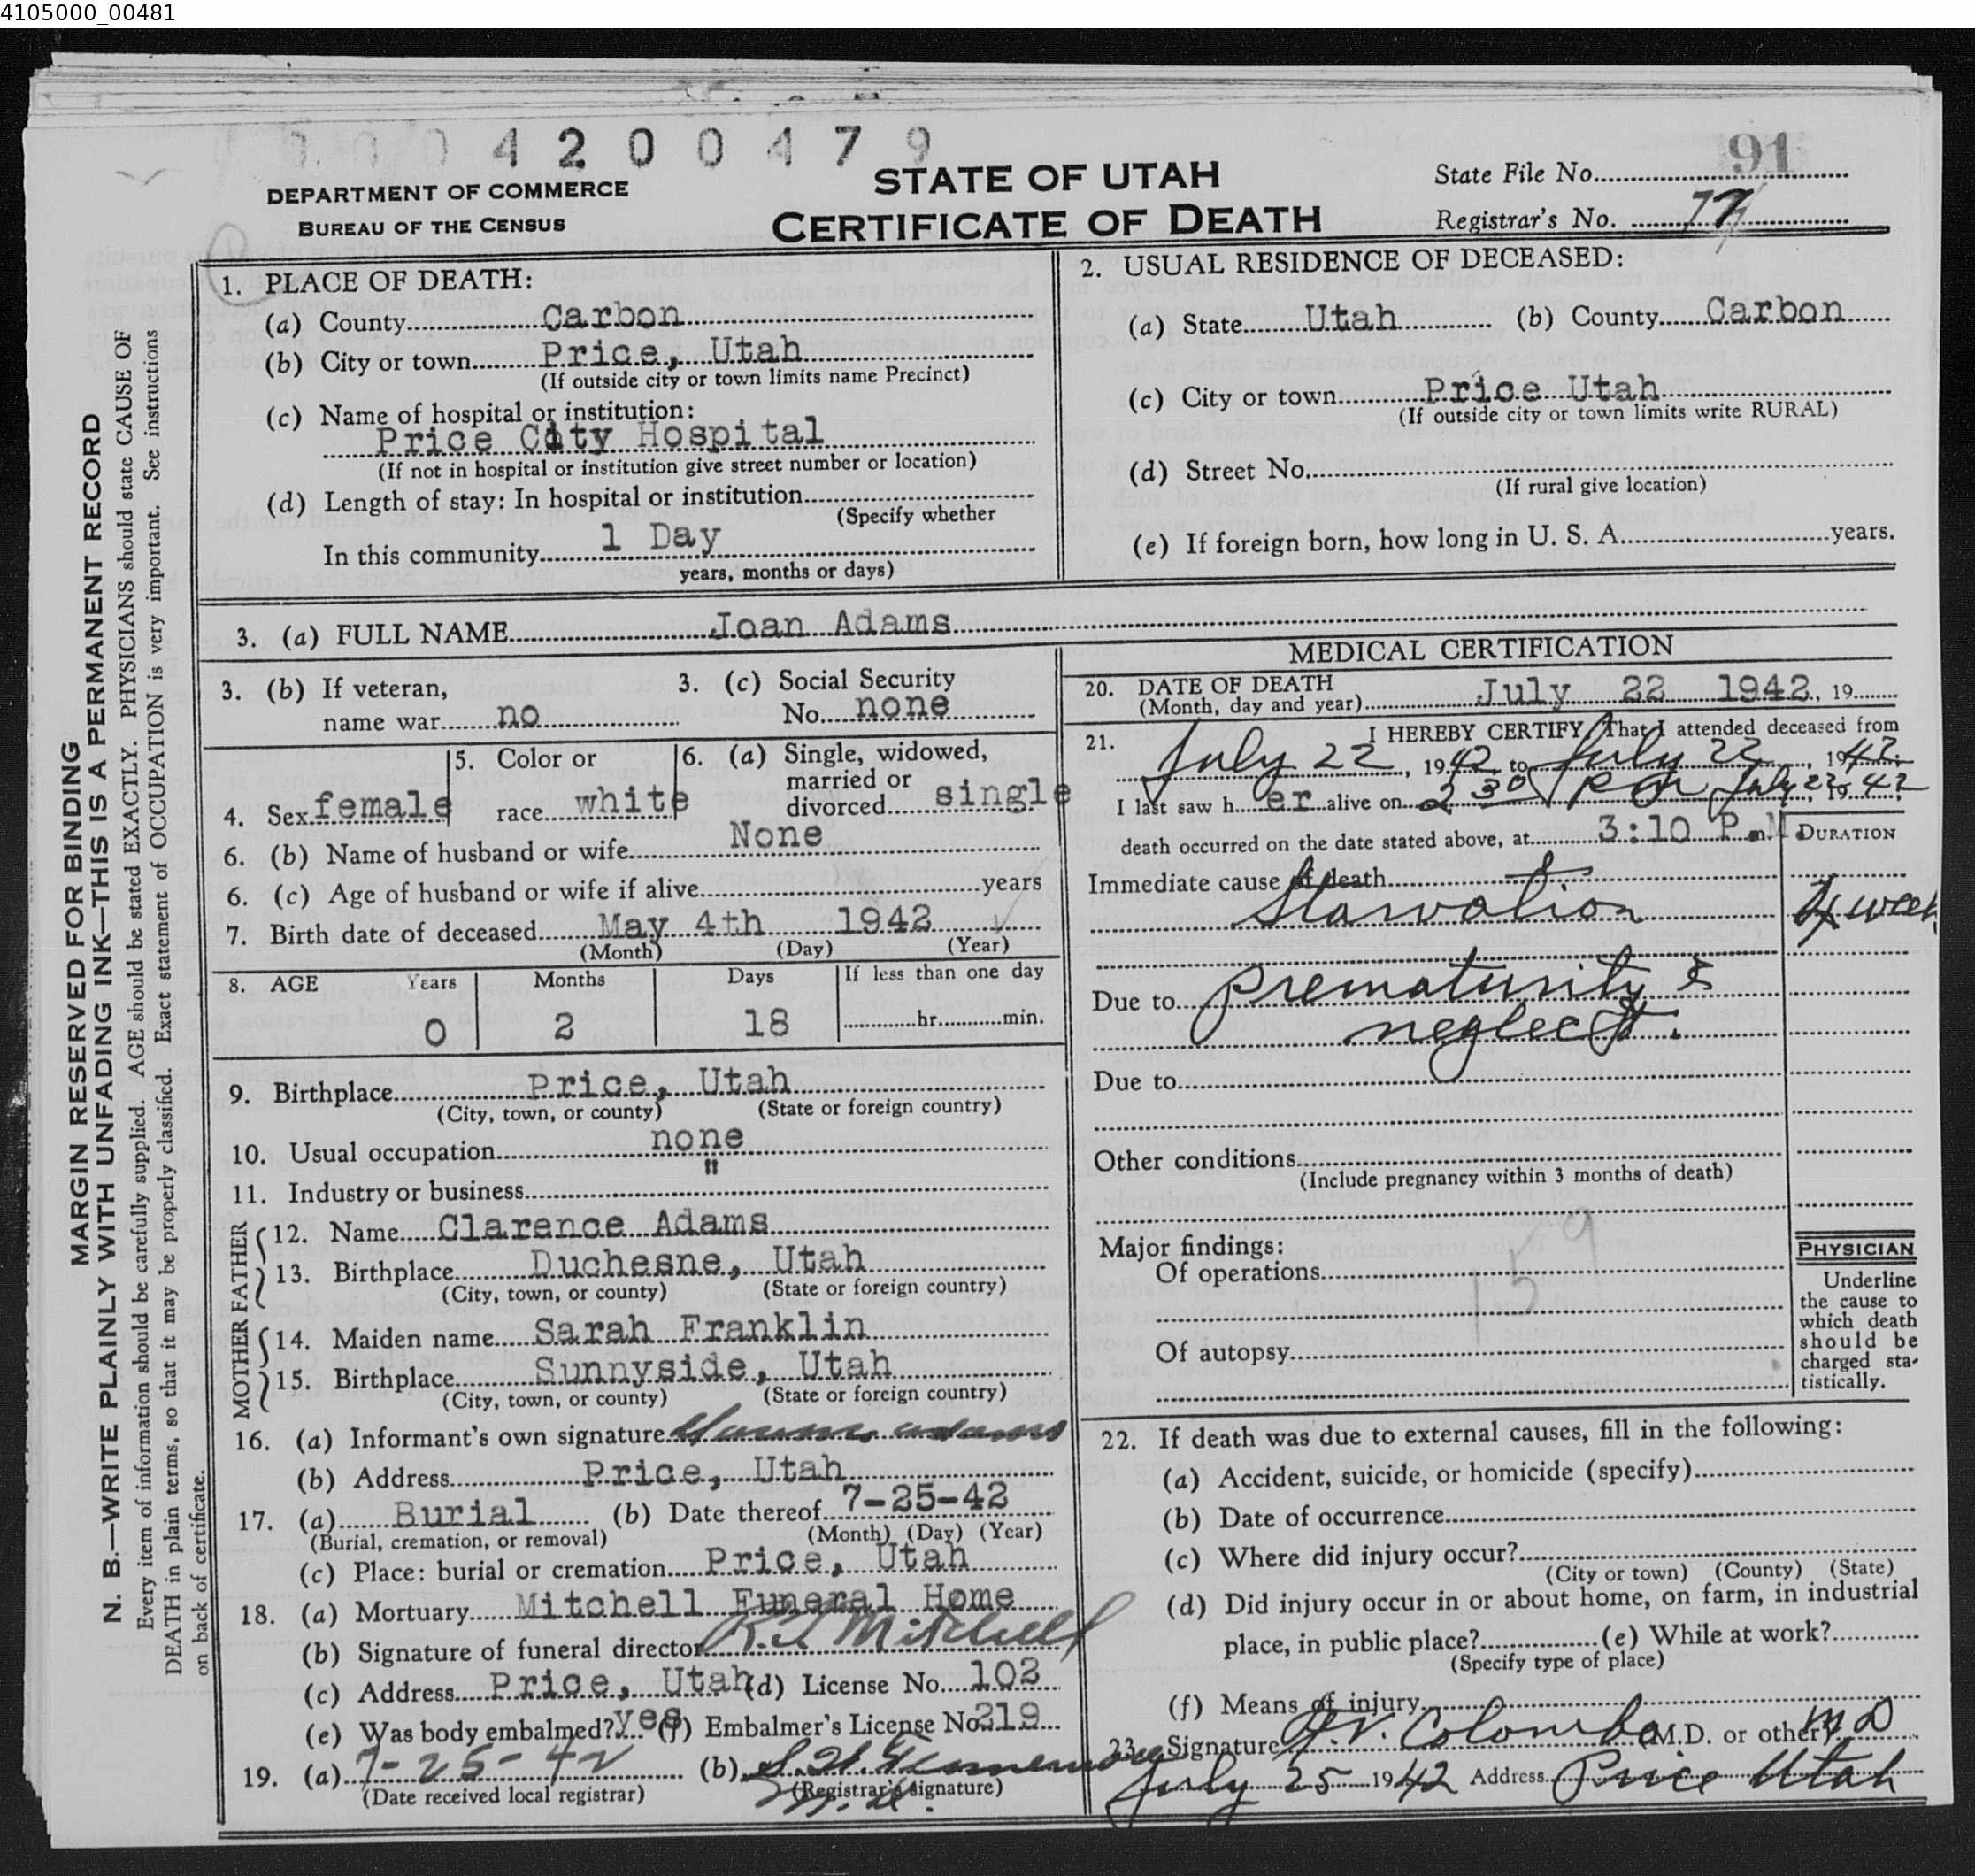 4105000_00481
4 2 0 0 4 7 9
91
DEPARTMENT OF COMMERCE
BUREAU OF THE CENSUS
STATE OF UTAH
CERTIFICATE OF DEATH
State File No.
Registrar's No. 77
MARGIN RESERVED FOR BINDING
N. B.—WRITE PLAINLY WITH UNFADING INK—THIS IS A PERMANENT RECORD
Every item of information should be carefully supplied. AGE should be stated EXACTLY. PHYSICIANS should state CAUSE OF
DEATH in plain terms, so that it may be properly classified. Exact statement of OCCUPATION is very important. See instructions
on back of certificate.
1. PLACE OF DEATH:
(a) County Carbon
(b) City or town Price, Utah
(If outside city or town limits name Precinct)
(c) Name of hospital or institution:
Price City Hospital
(If not in hospital or institution give street number or location)
(d) Length of stay: In hospital or institution
(Specify whether
In this community 1 Day
years, months or days)
2. USUAL RESIDENCE OF DECEASED:
(a) State Utah (b) County Carbon
(c) City or town Price Utah
(If outside city or town limits write RURAL)
(d) Street No.
(If rural give location)
(e) If foreign born, how long in U. S. A. years.
3. (a) FULL NAME Joan Adams
3. (b) If veteran,
name war no
3. (c) Social Security
No. none
4. Sex female
5. Color or
race white
6. (a) Single, widowed,
married or
divorced single
6. (b) Name of husband or wife None
6. (c) Age of husband or wife if alive years
7. Birth date of deceased May 4th 1942
(Month) (Day) (Year)
8. AGE Years Months Days If less than one day
0 2 18 hr. min.
9. Birthplace Price, Utah
(City, town, or county) (State or foreign country)
10. Usual occupation none
11. Industry or business "
FATHER
12. Name Clarence Adams
13. Birthplace Duchesne, Utah
(City, town, or county) (State or foreign country)
MOTHER
14. Maiden name Sarah Franklin
15. Birthplace Sunnyside, Utah
(City, town, or county) (State or foreign country)
16. (a) Informant's own signature Adams
(b) Address Price, Utah
17. (a) Burial (b) Date thereof 7-25-42
(Burial, cremation, or removal) (Month) (Day) (Year)
(c) Place: burial or cremation Price, Utah
18. (a) Mortuary Mitchell Funeral Home
(b) Signature of funeral director Mitchell
(c) Address Price, Utah (d) License No. 102
(e) Was body embalmed? yes (f) Embalmer's License No. 219
19. (a) 7-25-42 (b)
(Date received local registrar) (Registrar's signature)
MEDICAL CERTIFICATION
20. DATE OF DEATH
(Month, day and year) July 22 1942, 19
21. I HEREBY CERTIFY, That I attended deceased from
July 22, 1942 to July 22, 1942
I last saw her alive on 2 30 pm July 22, 1942
death occurred on the date stated above, at 3:10 P.M
DURATION
Immediate cause of death
Starvation
4 week
Due to prematurity &
neglect.
Due to
Other conditions
(Include pregnancy within 3 months of death)
Major findings:
Of operations
159
Of autopsy
PHYSICIAN
Underline
the cause to
which death
should be
charged sta-
tistically.
22. If death was due to external causes, fill in the following:
(a) Accident, suicide, or homicide (specify)
(b) Date of occurrence
(c) Where did injury occur?
(City or town) (County) (State)
(d) Did injury occur in or about home, on farm, in industrial
place, in public place? (e) While at work?
(Specify type of place)
(f) Means of injury
23. Signature Colombo (M.D. or other) MD
July 25 1942 Address Price Utah